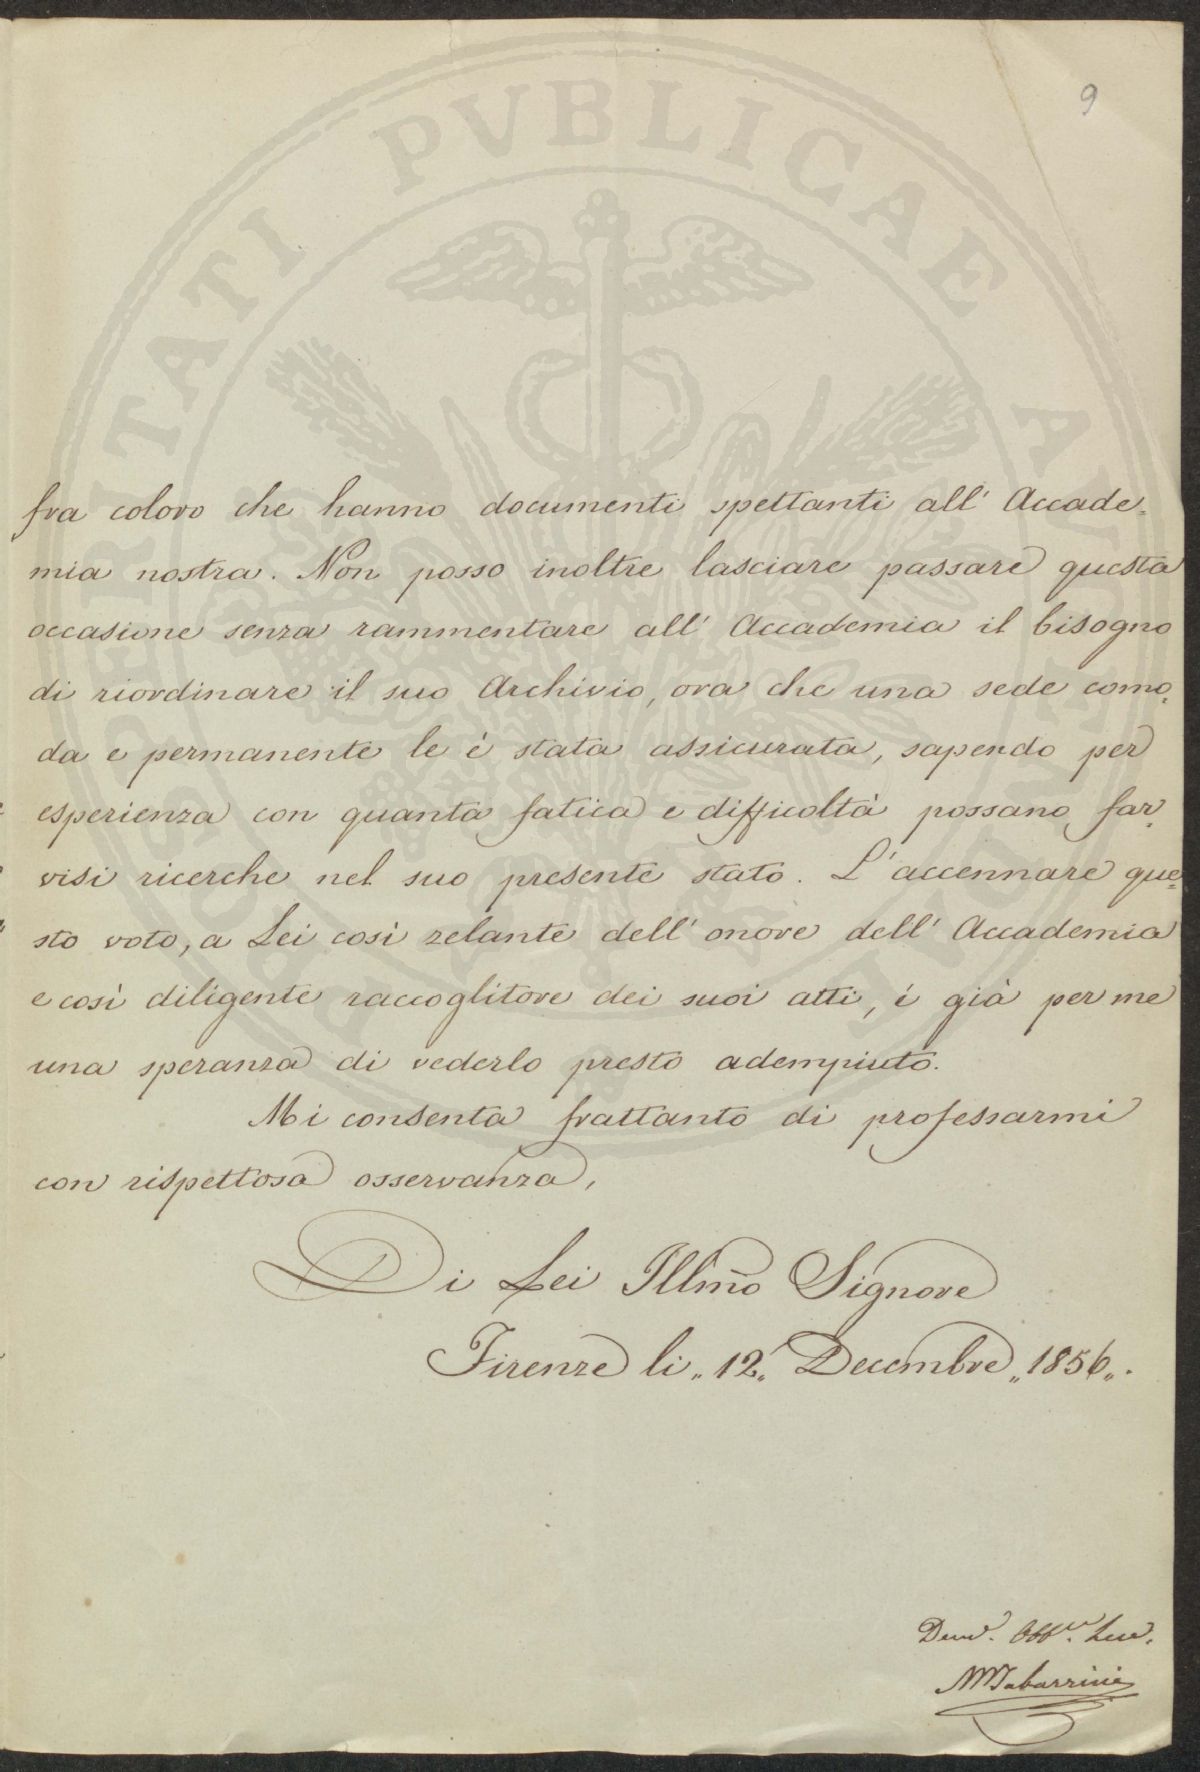 9
fra coloro che hanno documenti spettanti all' Accade-
mia nostra. Non posso inoltre lasciare passare questa
occasione senza rammentare all' Accademia il bisogno
di riordinare il suo Archivio, ora che una sede como-
da e permanente le è stata assicurata, sapendo per
esperienza con quanta fatica e difficoltà possano far-
visi ricerche nel suo presente stato. L'accennare que-
sto voto, a Lei così zelante dell' onore dell' Accademia
e così diligente raccoglitore dei suoi atti, è già per me
una speranza di vederlo presto adempiuto.
Mi consenta frattanto di professarmi
con rispettosa osservanza,
Di Lei Illmo Signore
Firenze li „ 12„ Decembre „ 1856„.
MTabarrini
PERITATI PVBLICAE A